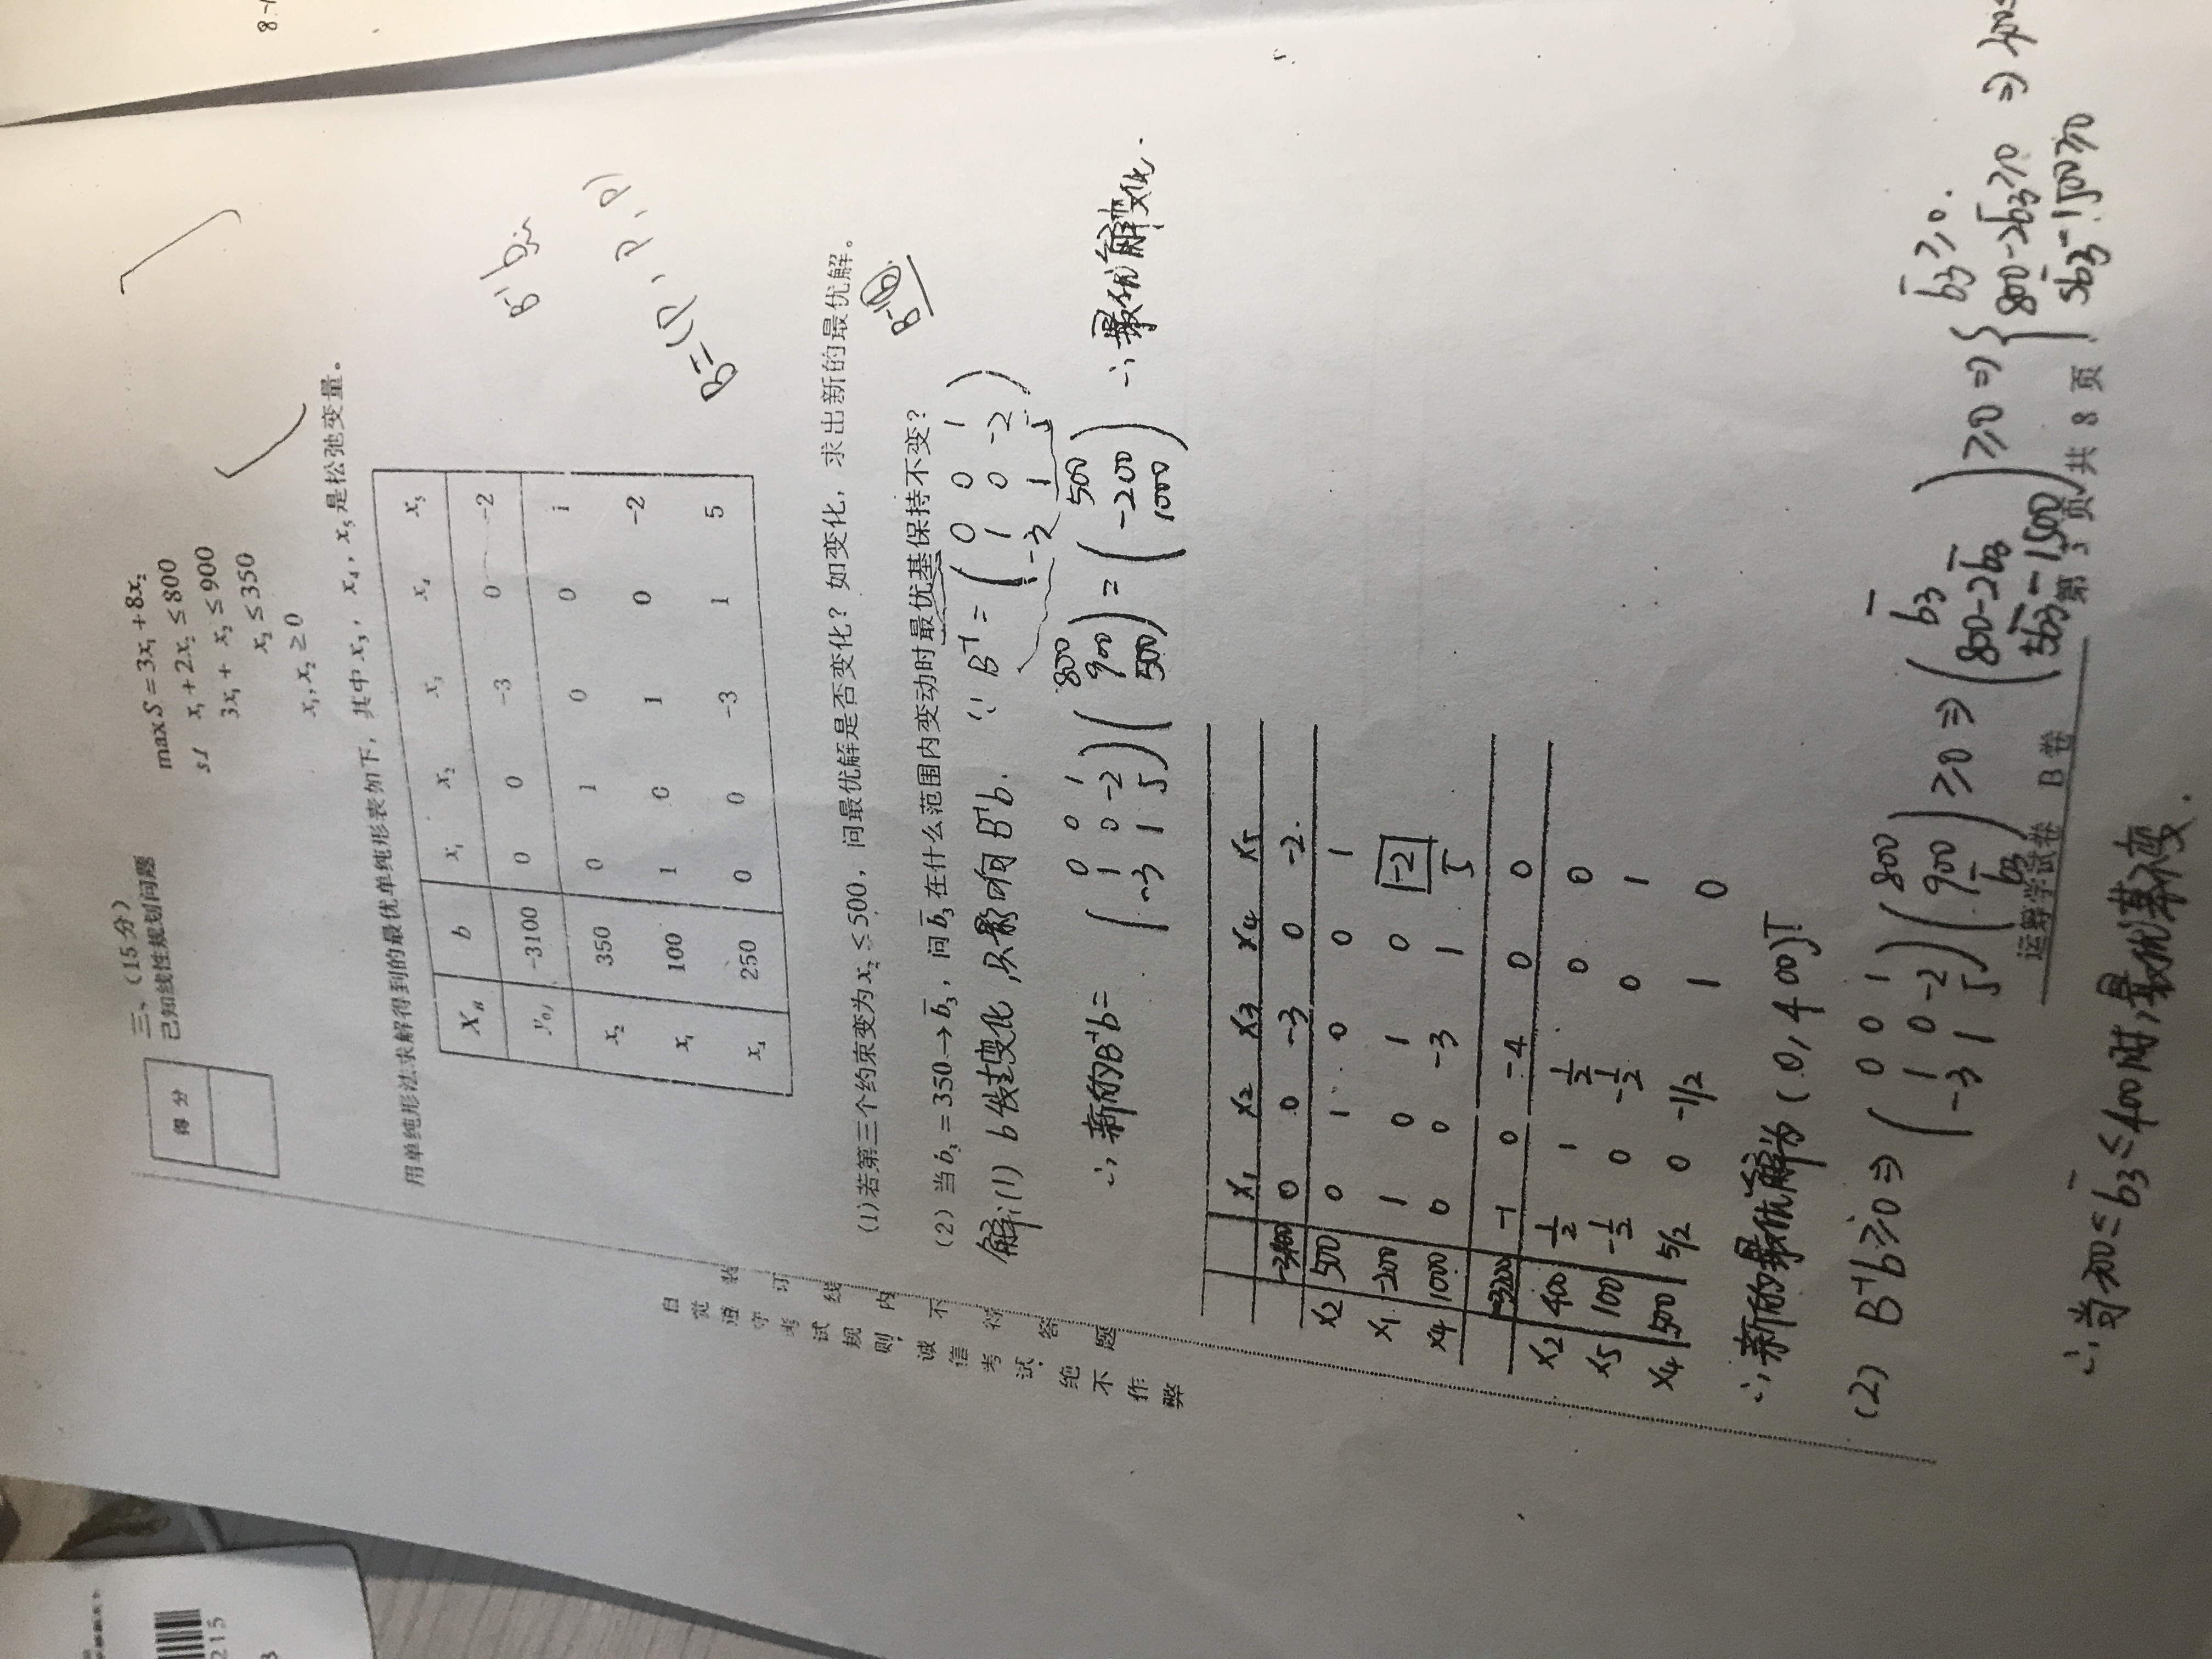 215
三、(15分)
已知线性规划问题
得 分
max S = 3x₁ + 8x₂
st x₁ + 2x₂ ≤ 800
3x₁ + x₂ ≤ 900
x₂ ≤ 350
x₁, x₂ ≥ 0
8.
用单纯形法求解得到的最优单纯形表如下，其中 x₃，x₄，x₅ 是松弛变量。
X_B b x₁ x₂ x₃ x₄ x₅
y₀ⱼ -3100 0 0 -3 0 -2
x₂ 350 0 1 0 0 1
x₁ 100 1 0 1 0 -2
x₄ 250 0 0 -3 1 5
B⁻¹b
B=(P, P, P)
自觉遵守考试规则，诚信考试，绝不作弊
装订线内不得答题
(1)若第三个约束变为 x₂ ≤ 500，问最优解是否变化？如变化，求出新的最优解。
B⁻¹b.
(2) 当 b₃ = 350 → b̄₃，问 b̄₃ 在什么范围内变动时最优基保持不变？
解:(1) b发生变化,只影响B⁻¹b. ∵ B⁻¹ = ( 0 0 1
1 0 -2
-3 1 5 )
∴ 新的B⁻¹b = ( 0 0 1 ; 1 0 -2 ; -3 1 5 ) ( 800 ; 900 ; 500 ) = ( 500 ; -200 ; 1000 ) ∴最优解变化.
x₁ x₂ x₃ x₄ x₅
-3100 0 0 -3 0 -2.
x₂ 500 0 1 0 0 1
x₁ -200 1 0 1 0 -2
x₄ 1000 0 0 -3 1 5
-3200 -1 0 -4 0 0
x₂ 400 1/2 1 1/2 0 0
x₅ 100 -1/2 0 -1/2 0 1
x₄ 500 5/2 0 -1/2 1 0
∴新的最优解为 (0, 400)T
(2) B⁻¹b≥0 ⇒ ( 0 0 1 ; 1 0 -2 ; -3 1 5 ) ( 800 ; 900 ; b̄₃ ) ≥0 ⇒ ( b̄₃ ; 800-2b̄₃ ; 5b̄₃-1500 ) ≥0 ⇒ { b̄₃≥0. ; 800-2b̄₃≥0 ; 5b̄₃-1500≥0 ⇒ 300≤
运筹学试卷 B 卷 第 3 页 共 8 页
∴当300≤b̄₃≤400时,最优基不变.